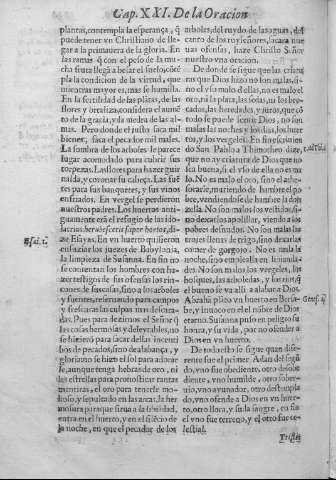 Cap. XXI. De la Oracion
plantas, contempla la esperança, q̃
puede tener vn Christiano de lle-
gar a la primauera de la gloria. En
las ramas q̃ con el peso de la mu-
cha fruta llegã a besar el suelo, cõtẽ
pla la condicion de la virtud, que
mientras mayor es, mas se humilla.
En la fertilidad de las plãtas, de las
flores y ortaliza, considera el aumẽ
to de la gracia, y da medra de las al-
mas. Pero donde el justo saca mil
bienes, saca el pecador mil males.
La sombra de los arboles le parece
lugar acomodado para cubrir sus
torpezas. Las flores para hazer guir
naldas, y coronar su cabeça. Las fuẽ
tes para sus banquetes, y sus vinos
enfriados. En vergel se perdieron
nuestros padres. Los huertos anti-
guamente erã el refugio de las
dize Esayas. En vn huerto quisieron
ensuziar los juezes de Babylonia,
la limpieza de Susanna. En fin no
se contentan los hombres con ha-
zer testigos de sus ofensas los rin-
cones de sus casas, sino los arboles
y fuentes, reseruando para campos
y frescuras las culpas mas
cadas. Pues para dezirnos el Señor q̃
las cosas hermosas y deleytables, no
se hizieron para sacar dellas incenti
bos de pecados, sino de alabança, y
gloria suya
se, aunque tenga hebras de oro, ni
das estrellas para
mientras, el oro para traerle
nodolo, y sepultado en las arcas, la her
mosura para que sirua a la
entra en el huerto, y en el silẽcio de
la noche, en que el pecador de los
arboles, del ruydo de las aguas, del
canto de los ruyseñores, sacara nue
uas ofensas, haze Christo Señor
nuestro vna oracion.
De donde se sigue que las criatu
ras que Dios hizo no son malas, si
no el q̃ vsa mal dellas, no es malo el
oro, ni la plata, las sedas, ni los bro-
cados, las heredades, y juros, que de
todo se puede seruir Dios, no son
malas las noches y los dias, los huer
tos, y los vergeles. En fin escriuien
do san Pablo a Thimotheo dize,
que no ay criatura de Dios que no
sea buena, si el vso de ella no es ma
lo. No es malo el oro, sino el ate-
sorarle, muriendo de hambre el po
bre, vendiendose de hambre la don
zella. No son malos los vestidos, si
no dexarlos apolillar, viendo a los
pobres desnudos. No son malas las
trojes llenas de trigo, sino dexarlas
comer de gorgojo. No es mala la
noche, sino emplealla en liuianda-
des. No son malos los vergeles, los
bosques, las arboledas, y las
el bueno se va alli a alabar a Dios.
Abrahã plãto vn huerto en Bersa-
be, y inuoco en el el nõbre de Dios
eterno. Susanna puso en peligro su
honra, y su vida, por no ofender a
Dios en vn huerto.
De todo esto se sigue quan dife-
rente fue el primer Adan del segũ-
do, vno fue obediente, otro desobe
diente, vno humilde, otro sober-
uio, vno ayunador, otro destempla
do, vno ofende a Dios en vn huer-
to, otro llora, y suda sangre, en fin
el vno fue terreno, y el otro fue ce-
lestial.
Tristis